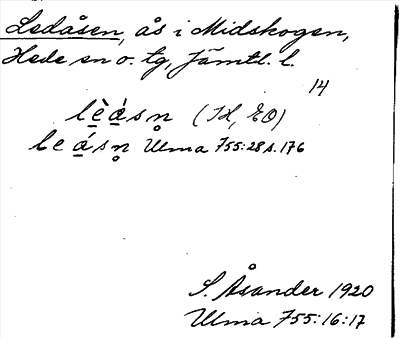 Ledåsen, ås i Midskogen,
Hede sn o. tg, Jämtl. l.
14
lè̱á̱sn̥ (IH, EO)
leá̱sn̥ Ulma 755:28 s. 176
S. Åsander 1920
Ulma 755:16:17